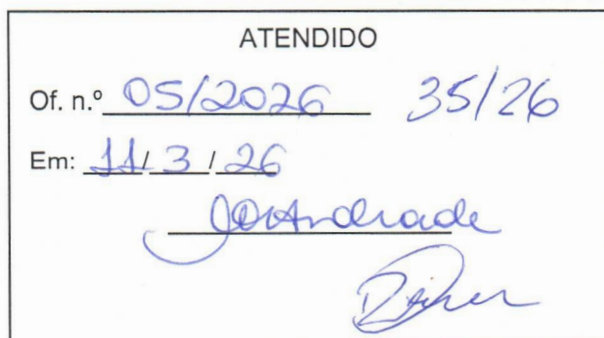 ATENDIDO
Of. n.º 05/2026 35/26
Em: 11/3/26
Andrade